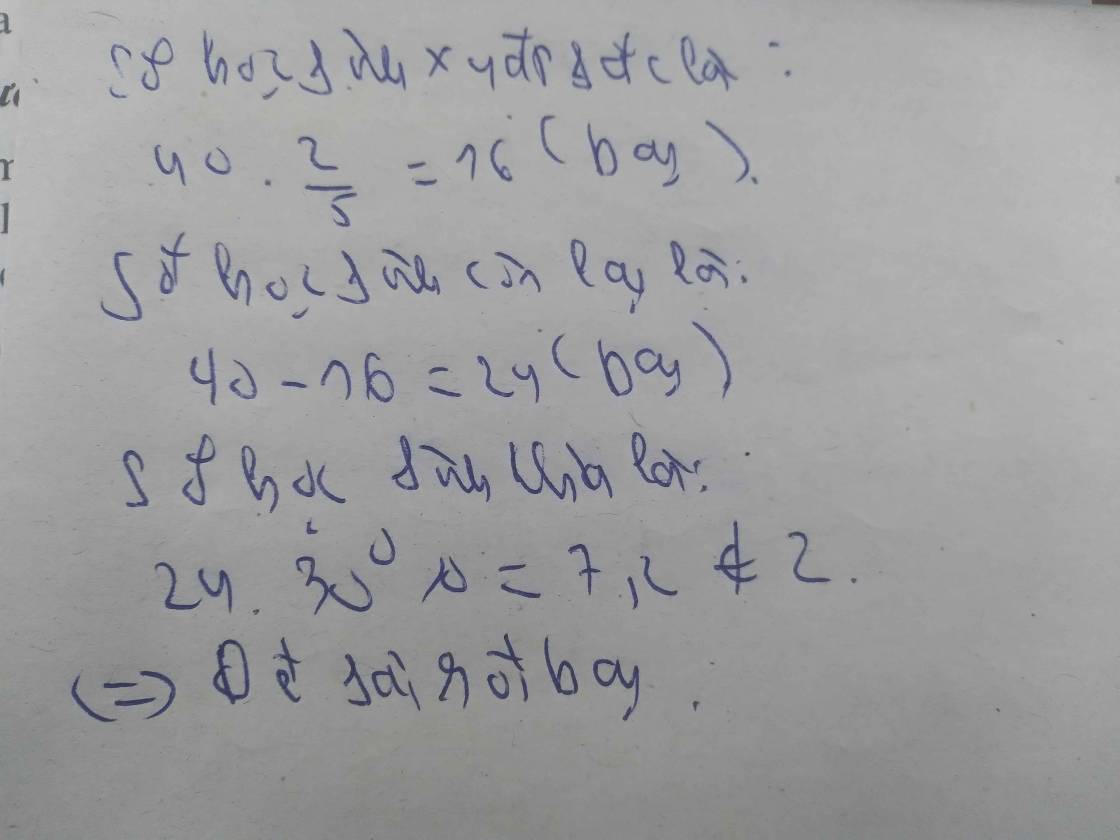 Số học sinh xuất sắc là :
40 . 2/5 = 16 ( bạy ).
Số học sinh còn lạy là:
40 - 16 = 24 ( bạy )
Số học sinh khá là:
24 . 30% = 7,2 ∉ Z.
(=) Đề sai rồi bạy .